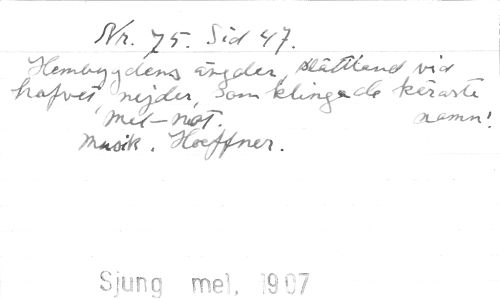 Nr. 75. Sid 47.
Hembygdens ängder, slättland vid
hafvet, nejder, som klingade käraste
namn!
Mel-not.
Musik. Hoeffner.
Sjung mel. 1907